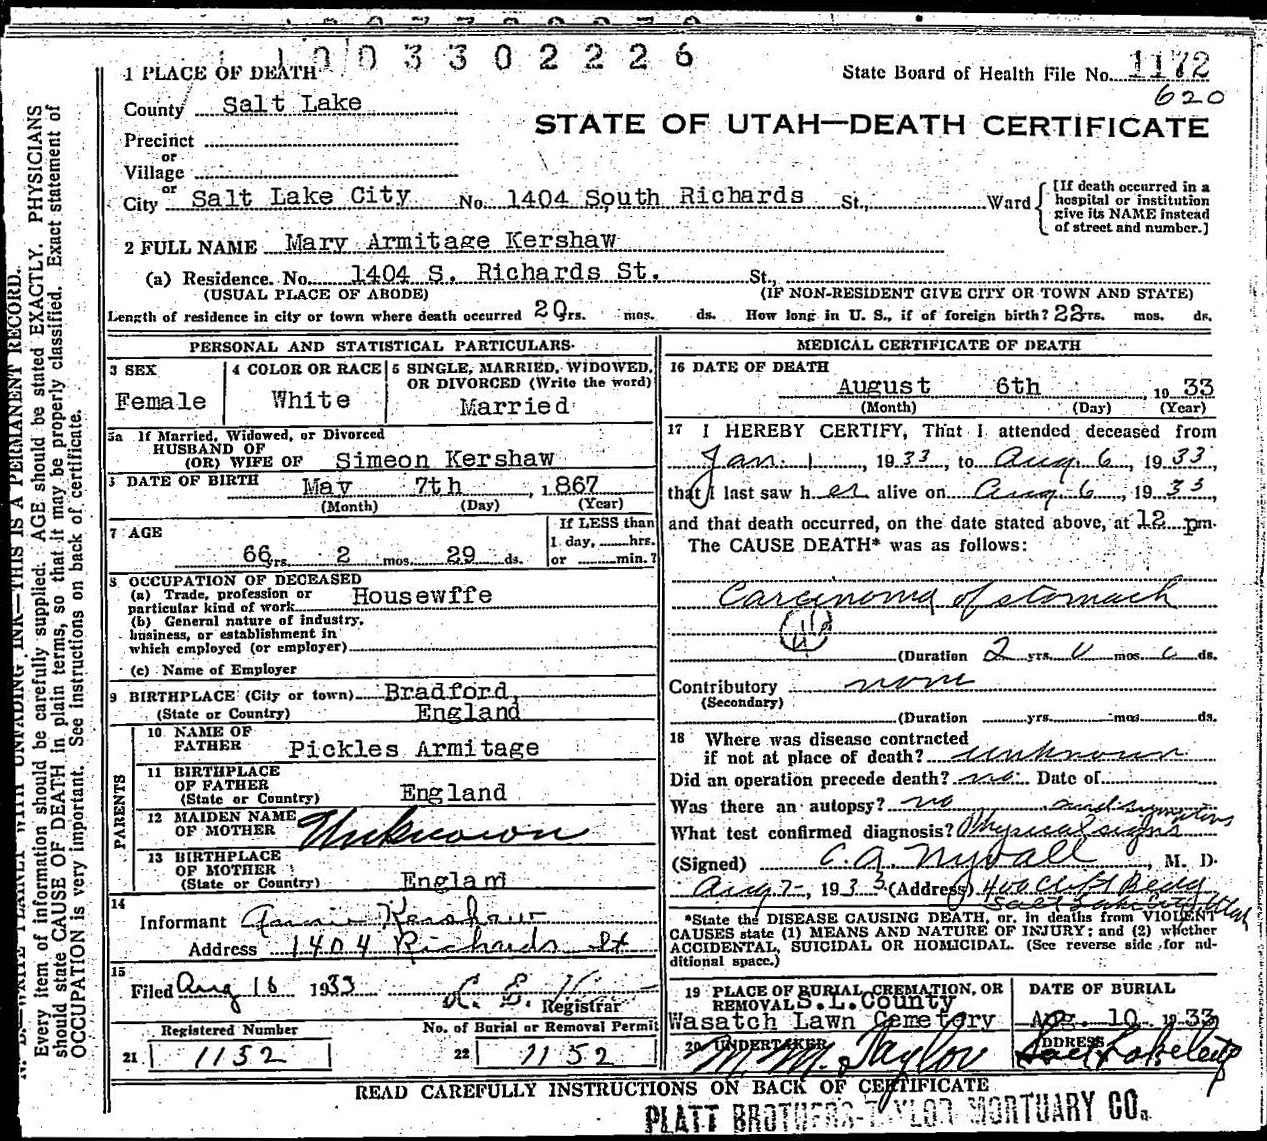 1003302226
1 PLACE OF DEATH
State Board of Health File No. 1172
620
County Salt Lake
STATE OF UTAH—DEATH CERTIFICATE
Precinct
or
Village
or
City Salt Lake City No. 1404 South Richards St., Ward
[If death occurred in a
hospital or institution
give its NAME instead
of street and number.]
2 FULL NAME Mary Armitage Kershaw
(a) Residence. No. 1404 S. Richards St. St.,
(USUAL PLACE OF ABODE) (IF NON-RESIDENT GIVE CITY OR TOWN AND STATE)
Length of residence in city or town where death occurred 20 yrs. mos. ds. How long in U. S., if of foreign birth? 22 yrs. mos. ds.
PERSONAL AND STATISTICAL PARTICULARS
3 SEX
Female
4 COLOR OR RACE
White
5 SINGLE, MARRIED, WIDOWED,
OR DIVORCED (Write the word)
Married
5a If Married, Widowed, or Divorced
HUSBAND OF
(OR) WIFE OF Simeon Kershaw
6 DATE OF BIRTH May 7th, 1867
(Month) (Day) (Year)
7 AGE
66 yrs. 2 mos. 29 ds.
If LESS than
1 day, hrs.
or min.?
8 OCCUPATION OF DECEASED
(a) Trade, profession or
particular kind of work Housewffe
(b) General nature of industry,
business, or establishment in
which employed (or employer)
(c) Name of Employer
9 BIRTHPLACE (City or town) Bradford,
(State or Country) England
PARENTS
10 NAME OF
FATHER Pickles Armitage
11 BIRTHPLACE
OF FATHER
(State or Country) England
12 MAIDEN NAME
OF MOTHER Unknown
13 BIRTHPLACE
OF MOTHER
(State or Country) England
14
Informant Annie Kershaw
Address 1404 Richards St
15
Filed Aug 16 1933
Registrar
Registered Number
21 1152
No. of Burial or Removal Permit
22 1152
MEDICAL CERTIFICATE OF DEATH
16 DATE OF DEATH
August 6th, 1933
(Month) (Day) (Year)
17 I HEREBY CERTIFY, That I attended deceased from
Jan. 1, 1933, to Aug. 6, 1933
that I last saw her alive on Aug. 6, 1933,
and that death occurred, on the date stated above, at 12 pm.
The CAUSE DEATH* was as follows:
Carcinoma of stomach
(Duration 2 yrs. 0 mos. 0 ds.
Contributory none
(Secondary)
(Duration yrs. mos. ds.
18 Where was disease contracted
if not at place of death? unknown
Did an operation precede death? no Date of
Was there an autopsy? no
What test confirmed diagnosis? Physical signs and symptoms
(Signed) C. A. Nyvall, M. D.
Aug 7-, 1933 (Address) 400 Cliff Bldg
Salt Lake City Utah
*State the DISEASE CAUSING DEATH, or, in deaths from VIOLENT
CAUSES state (1) MEANS AND NATURE OF INJURY; and (2) whether
ACCIDENTAL, SUICIDAL OR HOMICIDAL. (See reverse side for ad-
ditional space.)
19 PLACE OF BURIAL, CREMATION, OR
REMOVAL S.L.County
Wasatch Lawn Cemetery
DATE OF BURIAL
Aug. 10 1933
20 UNDERTAKER
M. M. Taylor
ADDRESS
Salt Lake City
READ CAREFULLY INSTRUCTIONS ON BACK OF CERTIFICATE
PLATT BROTHERS-TAYLOR MORTUARY CO.
N. B.—WRITE PLAINLY WITH UNFADING INK—THIS IS A PERMANENT RECORD.
Every item of information should be carefully supplied. AGE should be stated EXACTLY. PHYSICIANS
should state CAUSE OF DEATH in plain terms, so that it may be properly classified. Exact statement of
OCCUPATION is very important. See instructions on back of certificate.